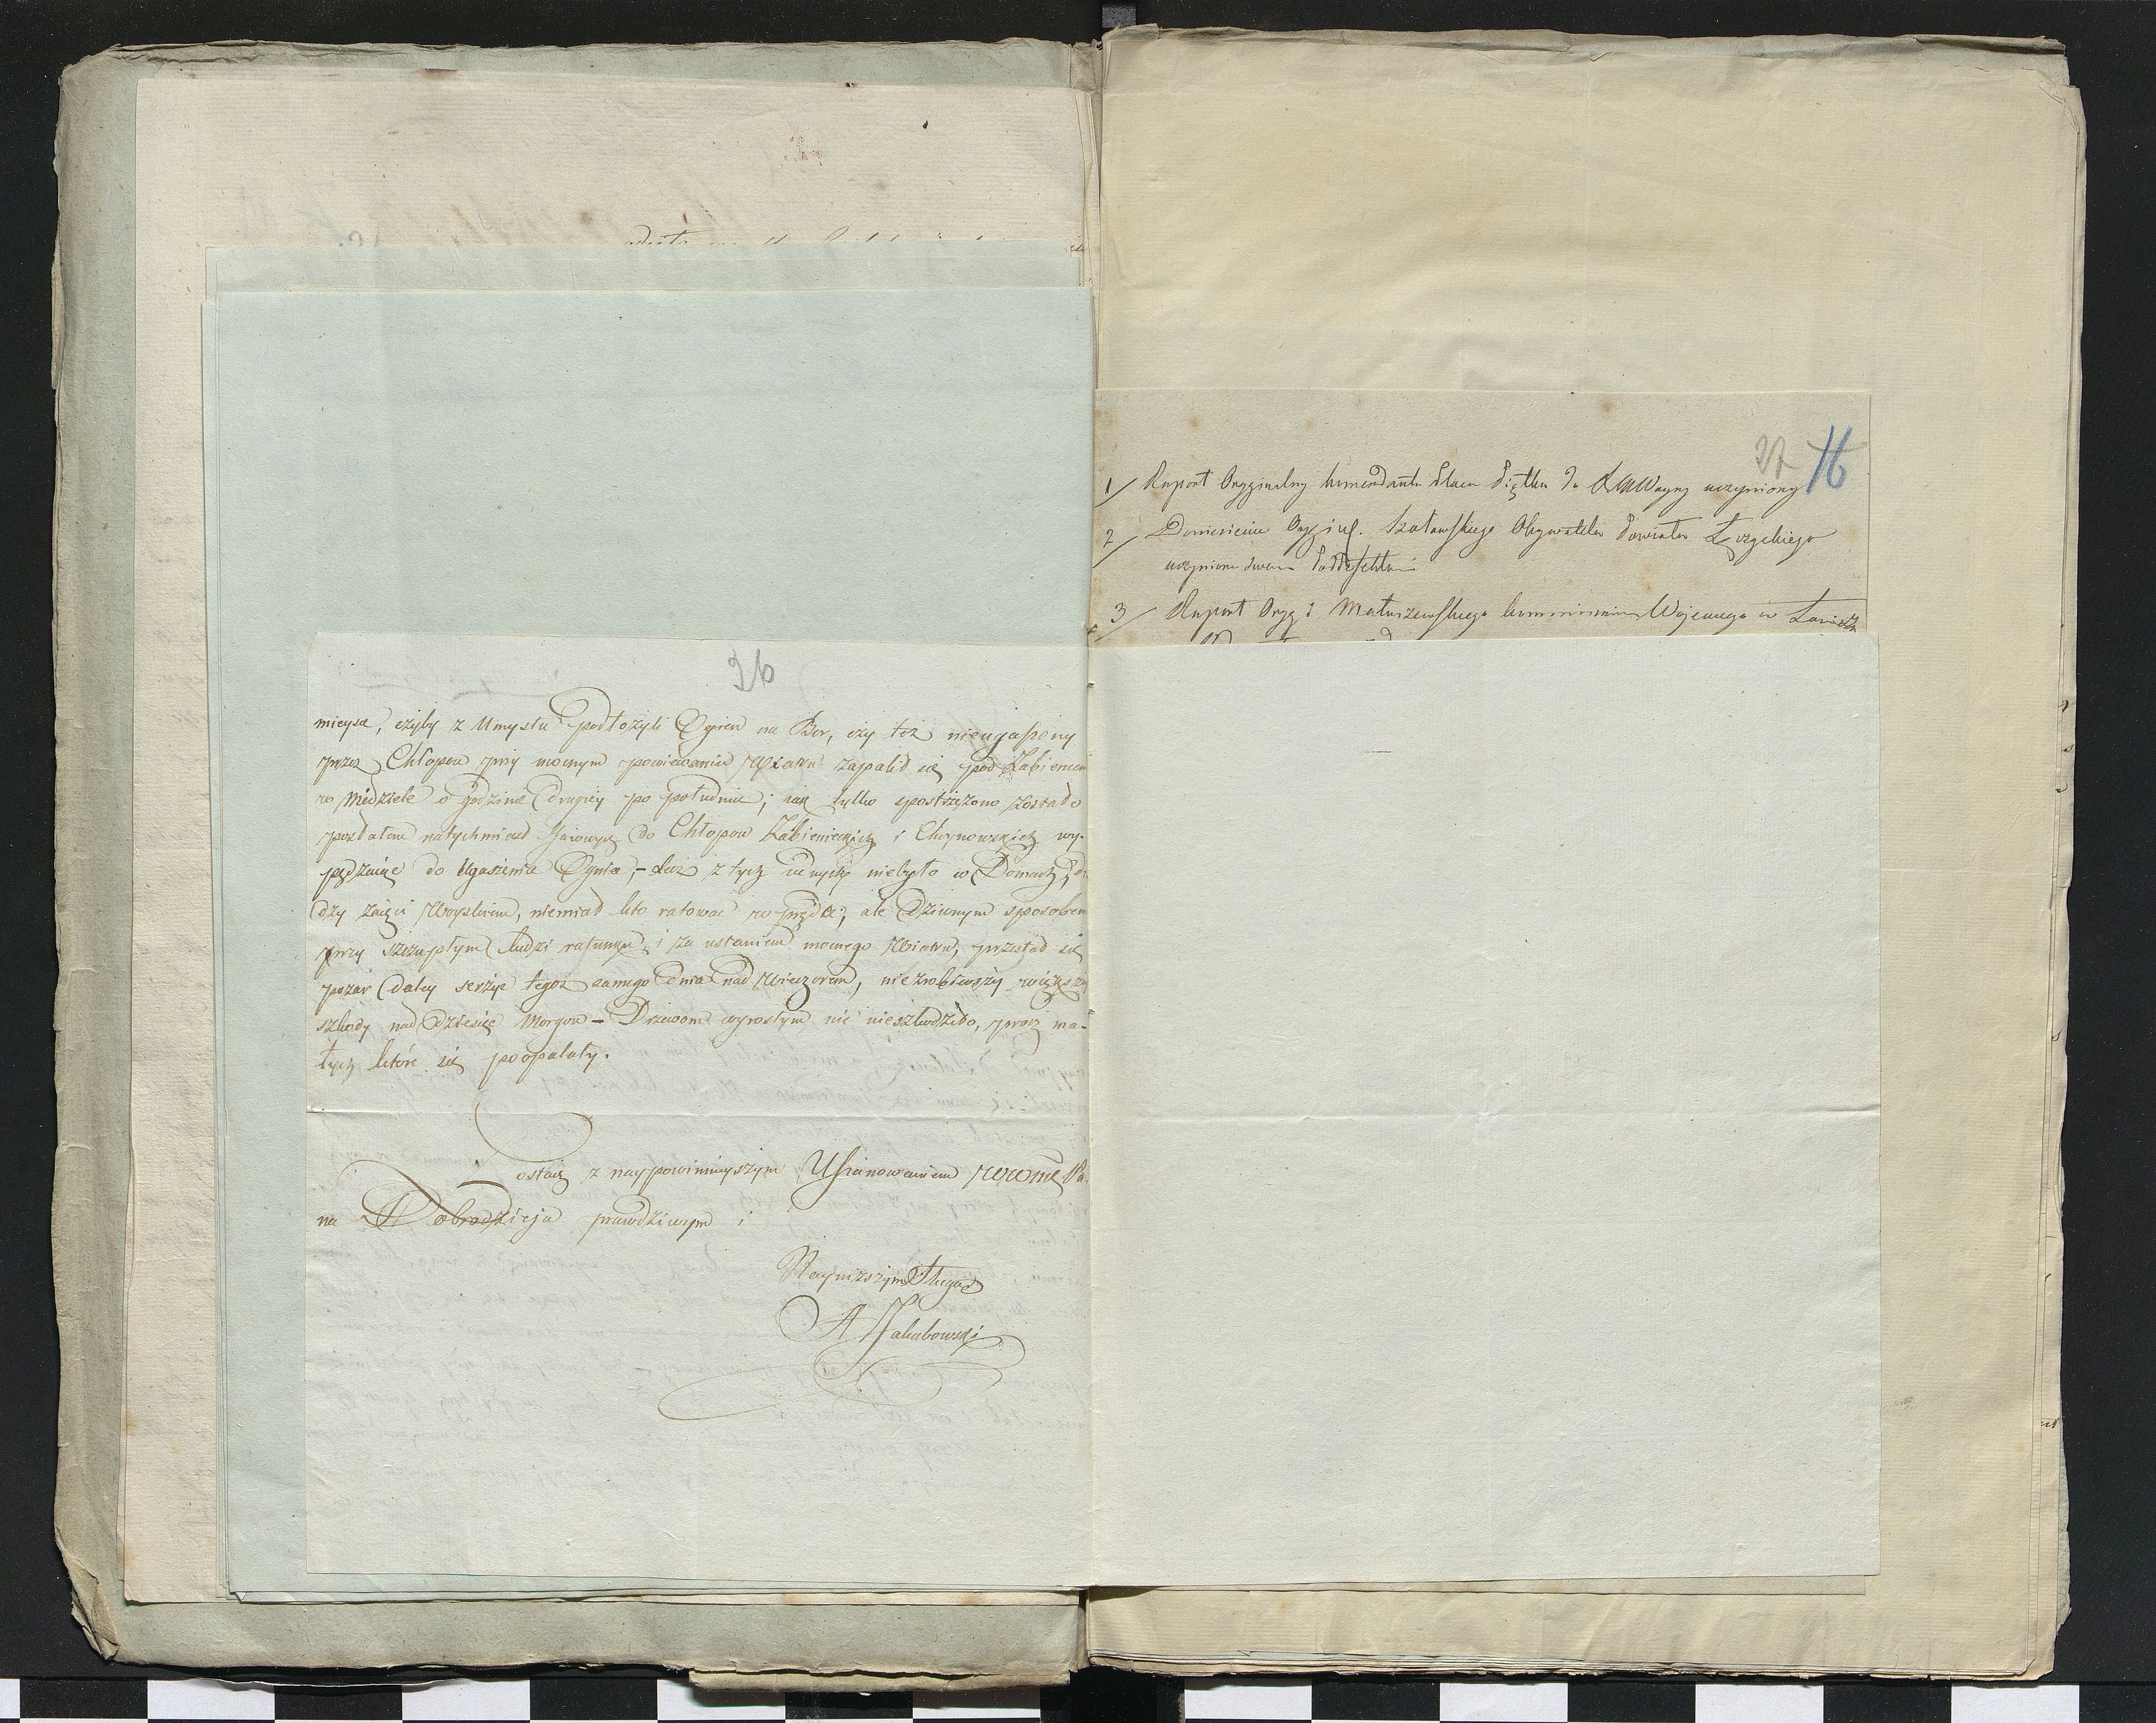 26
mieysce, czyby z Umysłu podłożyli Ogien na Bor, czy też nieugaszony
przez Chłopow przy mocnym powiewaniu Wiatru zapalił się pod Żabiencem
w Niedziele o godzinie drugiey po południu; iak tylko spostrzeżono zostało
posłałem natychmiast Gaiowych do Chłopow Żabienieckich i Choynowskich wy-
pędzaiąc do Ugaszenia Ognia, - Lecz z tych niebyło w Domach,
gdy zaięci Woyskiem, niemiał kto ratować w prędce; ale Dziwnym sposobem
przy szczupłym ludzi ratunku, i za ustaniem mocnego Wiatru, przestał się
pożar daley serzyć tegoż samego dnia nad Wieczorem, niezrobiwszy większey
szkody nad Dziesięć Morgow - Drzewom wyrosłym nic nieszkodziło, procz ma-
łych które się poopalały.
Zostaię z naypowinnieyszym Uszanowaniem Pa-
na Dobrodzieja prawdziwym i
Nayniższym Sługą
A Jakubowski
27 16
1/ Raport Oryginalny Komendanta Placu Piątku do Woyny uczyniony
2/ Doniesienie Orygin. Szatawskiego Obywatela Powiatu Łęczyckiego
uczynione Podprefektowi
3/ Raport Oryg: Matuszewskiego Kommissarza Wojennego w Łowiczu